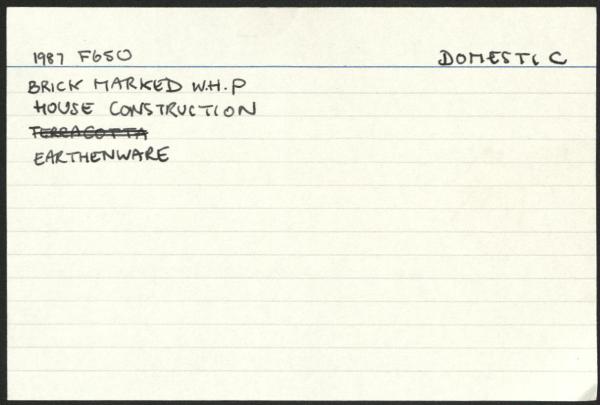 1987 F650 DOMESTIC
BRICK MARKED W.H.P
HOUSE CONSTRUCTION
TERRACOTTA
EARTHENWARE